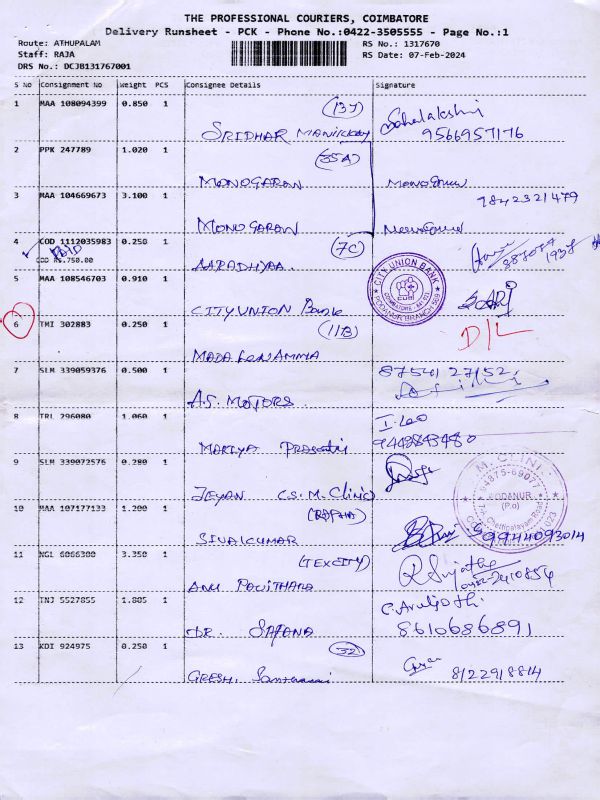 THE PROFESSIONAL COURIERS, COIMBATORE
Delivery Runsheet - PCK - Phone No.:0422-3505555 - Page No.:1
Route: ATHUPALAM
Staff: RAJA
DRS No.: DCJB131767001
RS No.: 1317670
RS Date: 07-Feb-2024
S No Consignment No Weight PCS Consignee Details Signature
1 MAA 108094399 0.850 1
SRIDHAR
9566957176
2 PPK 247789 1.020 1 (35A)
MONOGARAN
7842321479
3 MAA 104669673 3.100 1
MONOGARAN
4 COD 1112035983 0.250 1 (7C)
PAID
COD Rs.750.00
AARADHYAA
5 MAA 108546703 0.910 1
CITY UNION Bank
CITY UNION BANK
PODANUR BRANCH
6 TMI 302883 0.250 1 (11B)
D/L
7 SLM 339059376 0.500 1
A.S. MOTORS
8754127152
8 TRL 296080 1.060 1
9442843480
9 SLM 339072576 0.280 1
JEYAN (S.M. Clinic)
M. CLINIC
4875-69077
PODANUR
(P.o)
Chettipalayam Road
10 MAA 107177133 1.200 1
SIVAKUMAR
9944093014
11 NGL 6066300 3.350 1 (TEXCITY)
ANU PAVITHARA
12 TNJ 5527855 1.805 1
DR. SAFANA
8610686891
13 KDI 924975 0.250 1 (32)
8122918814